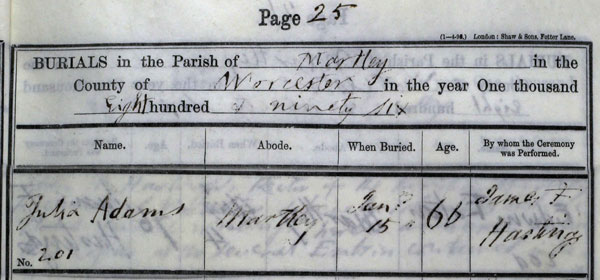 Page 25
(1—4—96.) London: Shaw & Sons, Fetter Lane.
BURIALS in the Parish of Martley in the
County of Worcester in the year One thousand
Eight hundred & ninety six
Name. Abode. When Buried. Age. By whom the Ceremony was Performed.
Julia Adams Martley Jany 15 66 James F Hastings
No. 201